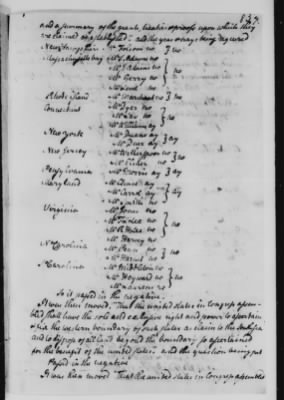 and a summary of the grants, treaties or proofs upon which they
are claimed or established; and the yeas & nays being required
Newhampshire Mr Folsom no } no
Massachusetts bay Mr S Adams no
Mr J Adams no } no
Mr Gerry no
Mr Lovell no
Rhode island Mr Marchant no } no
Connecticut Mr Dyer no
Mr Law no } no
Mr Williams ay
New york Mr Duane ay } ay
Mr Duer ay
New Jersey Mr Witherspoon no } no
Mr Elmer no
Pensylvania Mr Morris ay } ay
Maryland Mr Chase ay
Mr Carrol ay } ay
Mr Smith no
Virginia Mr Jones no
Mr F Lee no } no
Mr R H Lee no
Mr Harvey no
No Carolina Mr Penn no } no
Mr Harnet no
So Carolina Mr Middleton no
Mr Heyward no } no
Mr Laurens no
So it passed in the negative.
It was then moved, That the united states in congress assem-
bled shall have the sole and exclusive right and power to ascertain
& fix the western boundary of such states as claim to the
and to dispose of all land beyond the boundary so ascertained
for the benefit of the united states. and the question being put
Passed in the negative
It was then moved That the united states in congress assembled